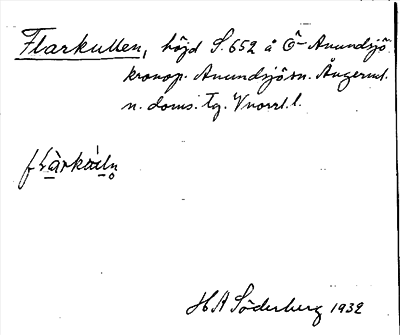 Flarkullen, höjd S. 652 å Ö-Anundsjö
kronop. Anundsjö sn. Ångerml.
n. doms. tg. Vnorrl. l.
H A Söderberg 1932